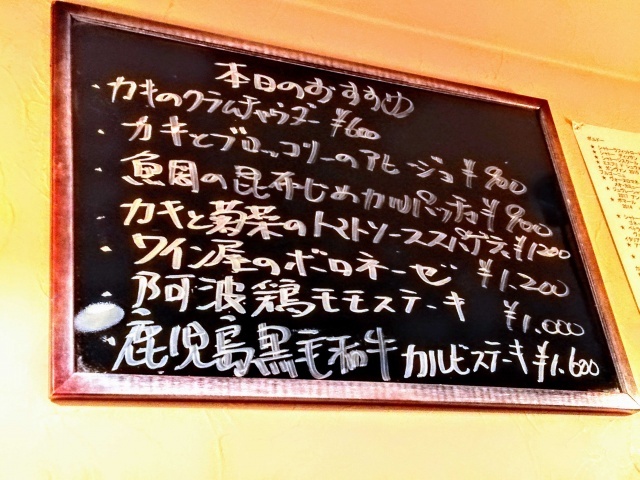 本日のおすすめ
・カキのクラムチャウダー ¥600
・カキとブロッコリーのアヒージョ ¥900
・魚の昆布じめカルパッチョ ¥900
・カキと菊菜のトマトソーススパゲティ ¥1200
・ワイン屋のボロネーゼ ¥1.200
・阿波鶏モモステーキ ¥1.000
・鹿児島黒毛和牛カルビステーキ ¥1.600